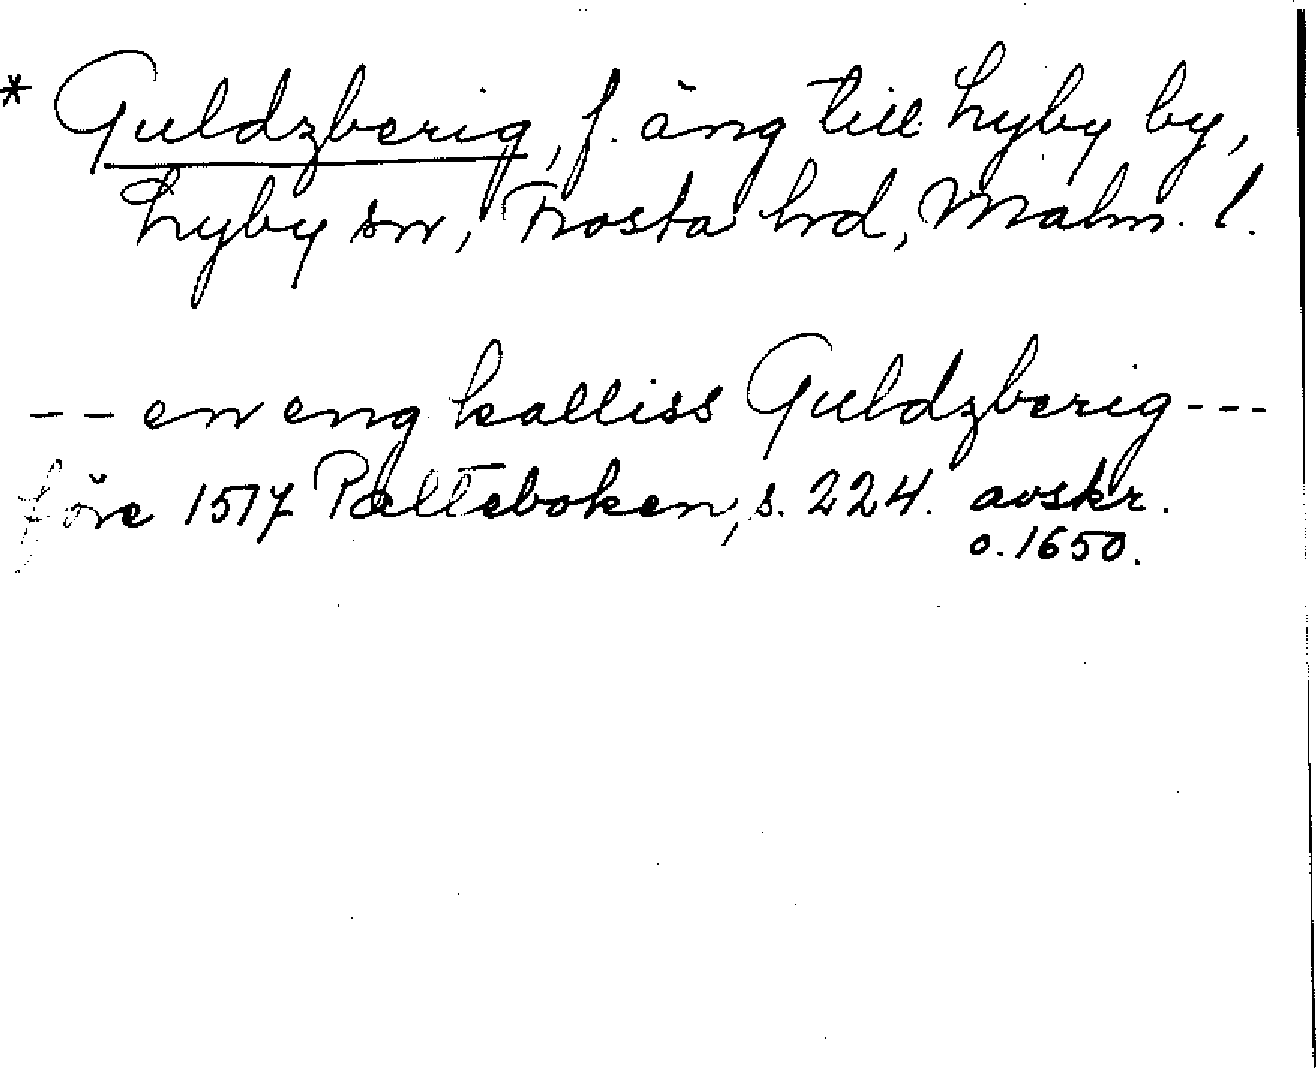 * Guldzberig, f. äng till Lyby by,
Lyby sn, Frosta hd, Malm. l.
-- en eng kalliss Guldzberig ---
före 1517 Pælteboken, s. 224. avskr.
o. 1650.